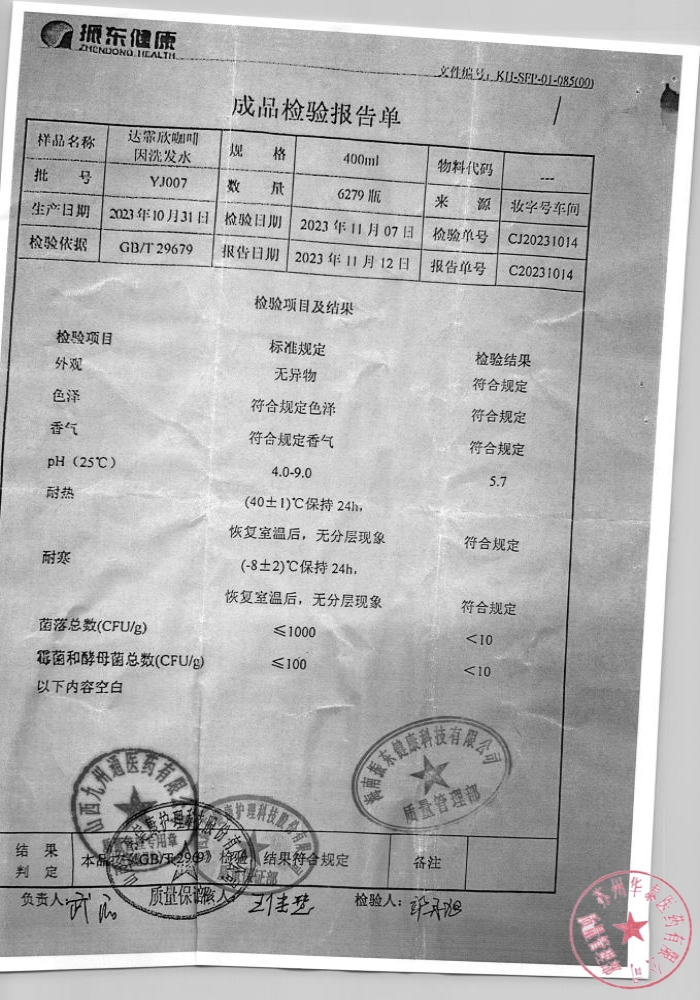 振东健康
ZHENDONG HEALTH
文件编号：KH-SFP-01-085(00)
成品检验报告单
样品名称 达霏欣咖啡因洗发水 规格 400ml 物料代码 ---
批号 YJ007 数量 6279 瓶 来源 妆字号车间
生产日期 2023年10月31日 检验日期 2023 年 11 月 07 日 检验单号 CJ20231014
检验依据 GB/T 29679 报告日期 2023 年 11 月 12 日 报告单号 C20231014
检验项目及结果
检验项目 标准规定 检验结果
外观 无异物 符合规定
色泽 符合规定色泽 符合规定
香气 符合规定香气 符合规定
pH（25℃） 4.0-9.0 5.7
耐热 (40±1)℃保持 24h，
恢复室温后，无分层现象 符合规定
耐寒 (-8±2)℃保持 24h，
恢复室温后，无分层现象 符合规定
菌落总数(CFU/g) ≤1000 <10
霉菌和酵母菌总数(CFU/g) ≤100 <10
以下内容空白
山西九州通医药有限
振东健康科技有限公司
质量管理部
护理科技股份有限公司
结果判定 本品 GB/T 29679 检验，结果符合规定 备注
负责人： 检验人：
苏州华泰医药有限公司